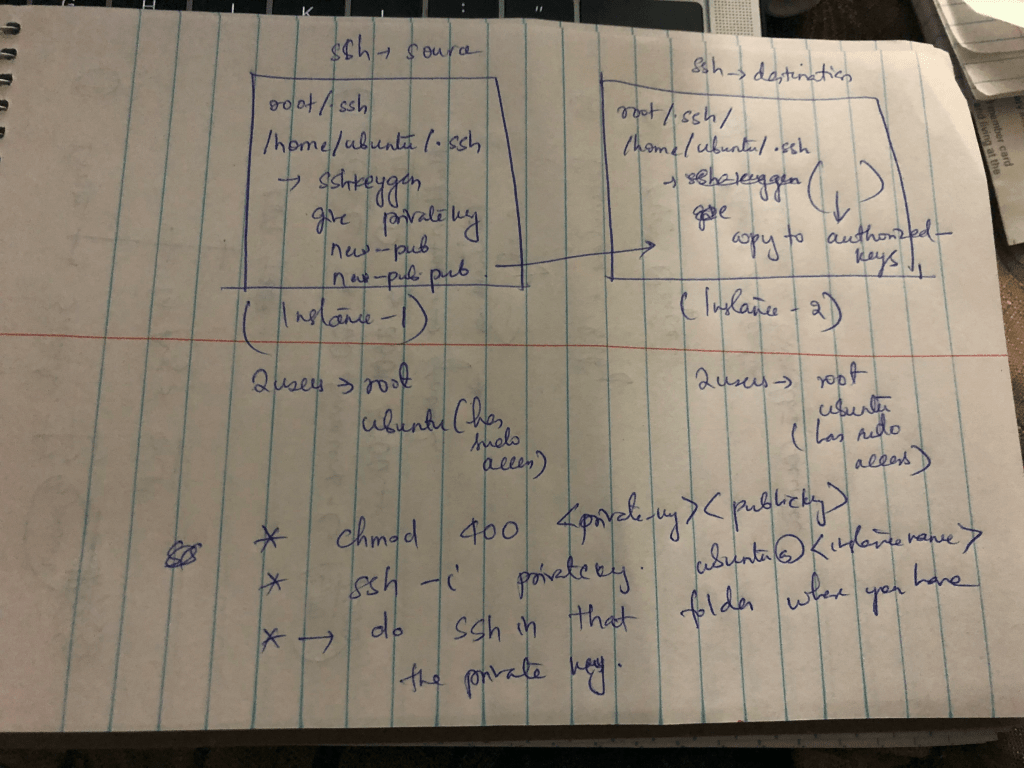 ssh → source
root/.ssh
/home/ubuntu/.ssh
→ sshkeygen
give private key
new-pub
new-pub pub
(Instance-1)
2 users → root
ubuntu (has
sudo
access)
ssh → destination
root/.ssh/
/home/ubuntu/.ssh
→ sshkeygen ( )
give
copy to authorized-
keys
(Instance - 2)
2 users → root
ubuntu
(has sudo
access)
* chmod 400 <private-key> <publickey>
* ssh -i privatekey. ubuntu@<instancename>
* → do ssh in that folder where you have
the private key.